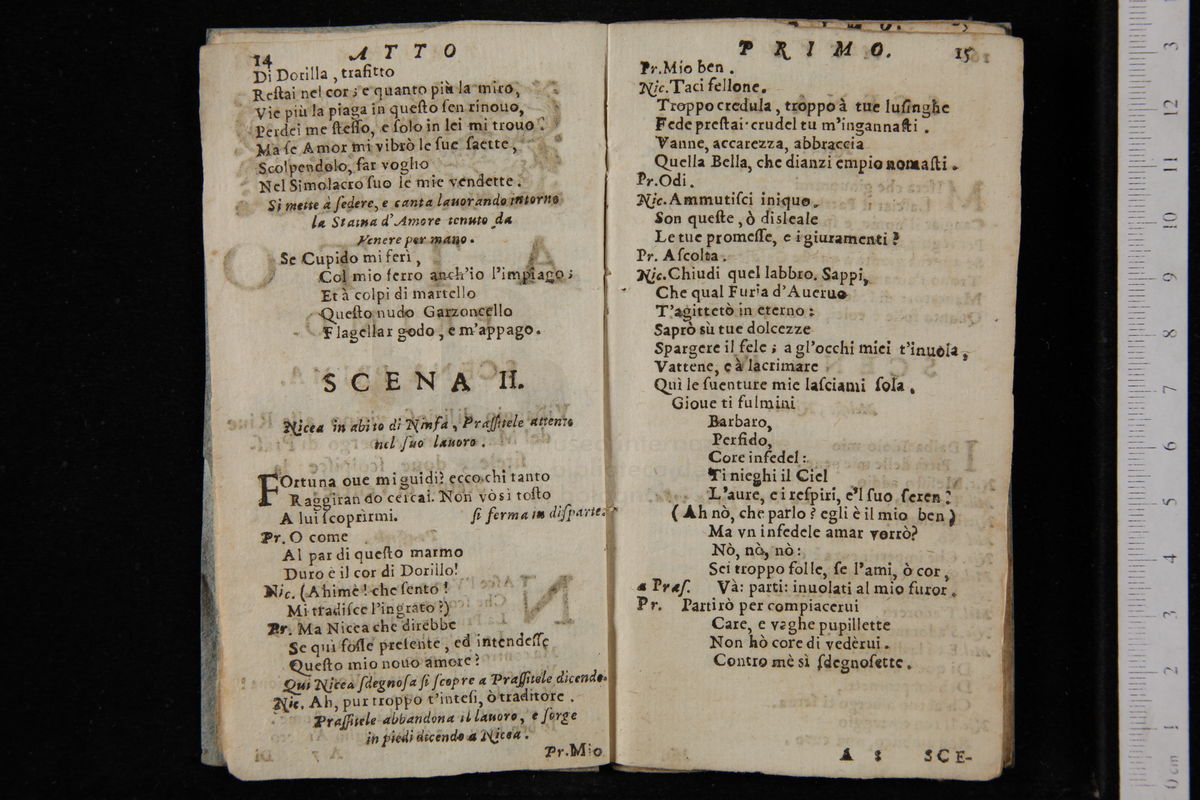 14 ATTO
Di Dorilla, trafitto
Reſtai nel cor; e quanto più la miro,
Vie più la piaga in queſto ſen rinouo,
Perdei me ſteſſo, e ſolo in lei mi trouo!
Ma ſe Amor mi vibrò le ſue ſaette,
Scolpendolo, far voglio
Nel Simolacro ſuo le mie vendette.
Si mette à ſedere, e canta lauorando intorno
la Statua d'Amore tenuto da
Venere per mano.
Se Cupido mi ferì,
Col mio ferro anch'io l'impiago;
Et à colpi di martello
Queſto nudo Garzoncello
Flagellar godo, e m'appago.
SCENA II.
Nicea in abito di Ninfa, Praſſitele attento
nel ſuo lauoro.
FOrtuna oue mi guidi? ecco chi tanto
Raggirando cercai. Non vò sì toſto
A lui ſcoprirmi. ſi ferma in diſparte.
Pr. O come
Al par di queſto marmo
Duro è il cor di Dorillo!
Nic. (Ahimè! che ſento!
Mi tradiſce l'ingrato?)
Pr. Ma Nicea che direbbe
Se quì foſſe preſente, ed intendeſſe
Queſto mio nouo amore?
Quì Nicea ſdegnoſa ſi ſcopre a Praſſitele dicendo.
Nic. Ah, pur troppo t'inteſi, ò traditore.
Praſſitele abbandona il lauoro, e ſorge
in piedi dicendo a Nicea.
Pr. Mio
PRIMO. 15
Pr. Mio ben.
Nic. Taci fellone.
Troppo credula, troppo à tue luſinghe
Fede preſtai· crudel tu m'ingannaſti.
Vanne, accarezza, abbraccia
Quella Bella, che dianzi empio nomaſti.
Pr. Odi.
Nic. Ammutiſci iniquo.
Son queſte, ò disleale
Le tue promeſſe, e i giuramenti?
Pr. Aſcolta.
Nic. Chiudi quel labbro. Sappi,
Che qual Furia d'Aueruo
T'agitterò in eterno:
Saprò sù tue dolcezze
Spargere il fele; a gl'occhi miei t'inuola,
Vattene, e à lacrimare
Quì le ſuenture mie laſciami ſola.
Gioue ti fulmini
Barbaro,
Perfido,
Core infedel:
Ti nieghi il Ciel
L'aure, e i reſpiri, e'l ſuo ſeren!
(Ah nò, che parlo? egli è il mio ben)
Ma vn infedele amar vorrò?
Nò, nò, nò:
Sei troppo folle, ſe l'ami, ò cor,
a Praſ. Và: parti: inuolati al mio furor.
Pr. Partirò per compiacerui
Care, e vaghe pupillette
Non hò core di vedèrui.
Contro mè sì ſdegnoſette.
A 8 SCE-